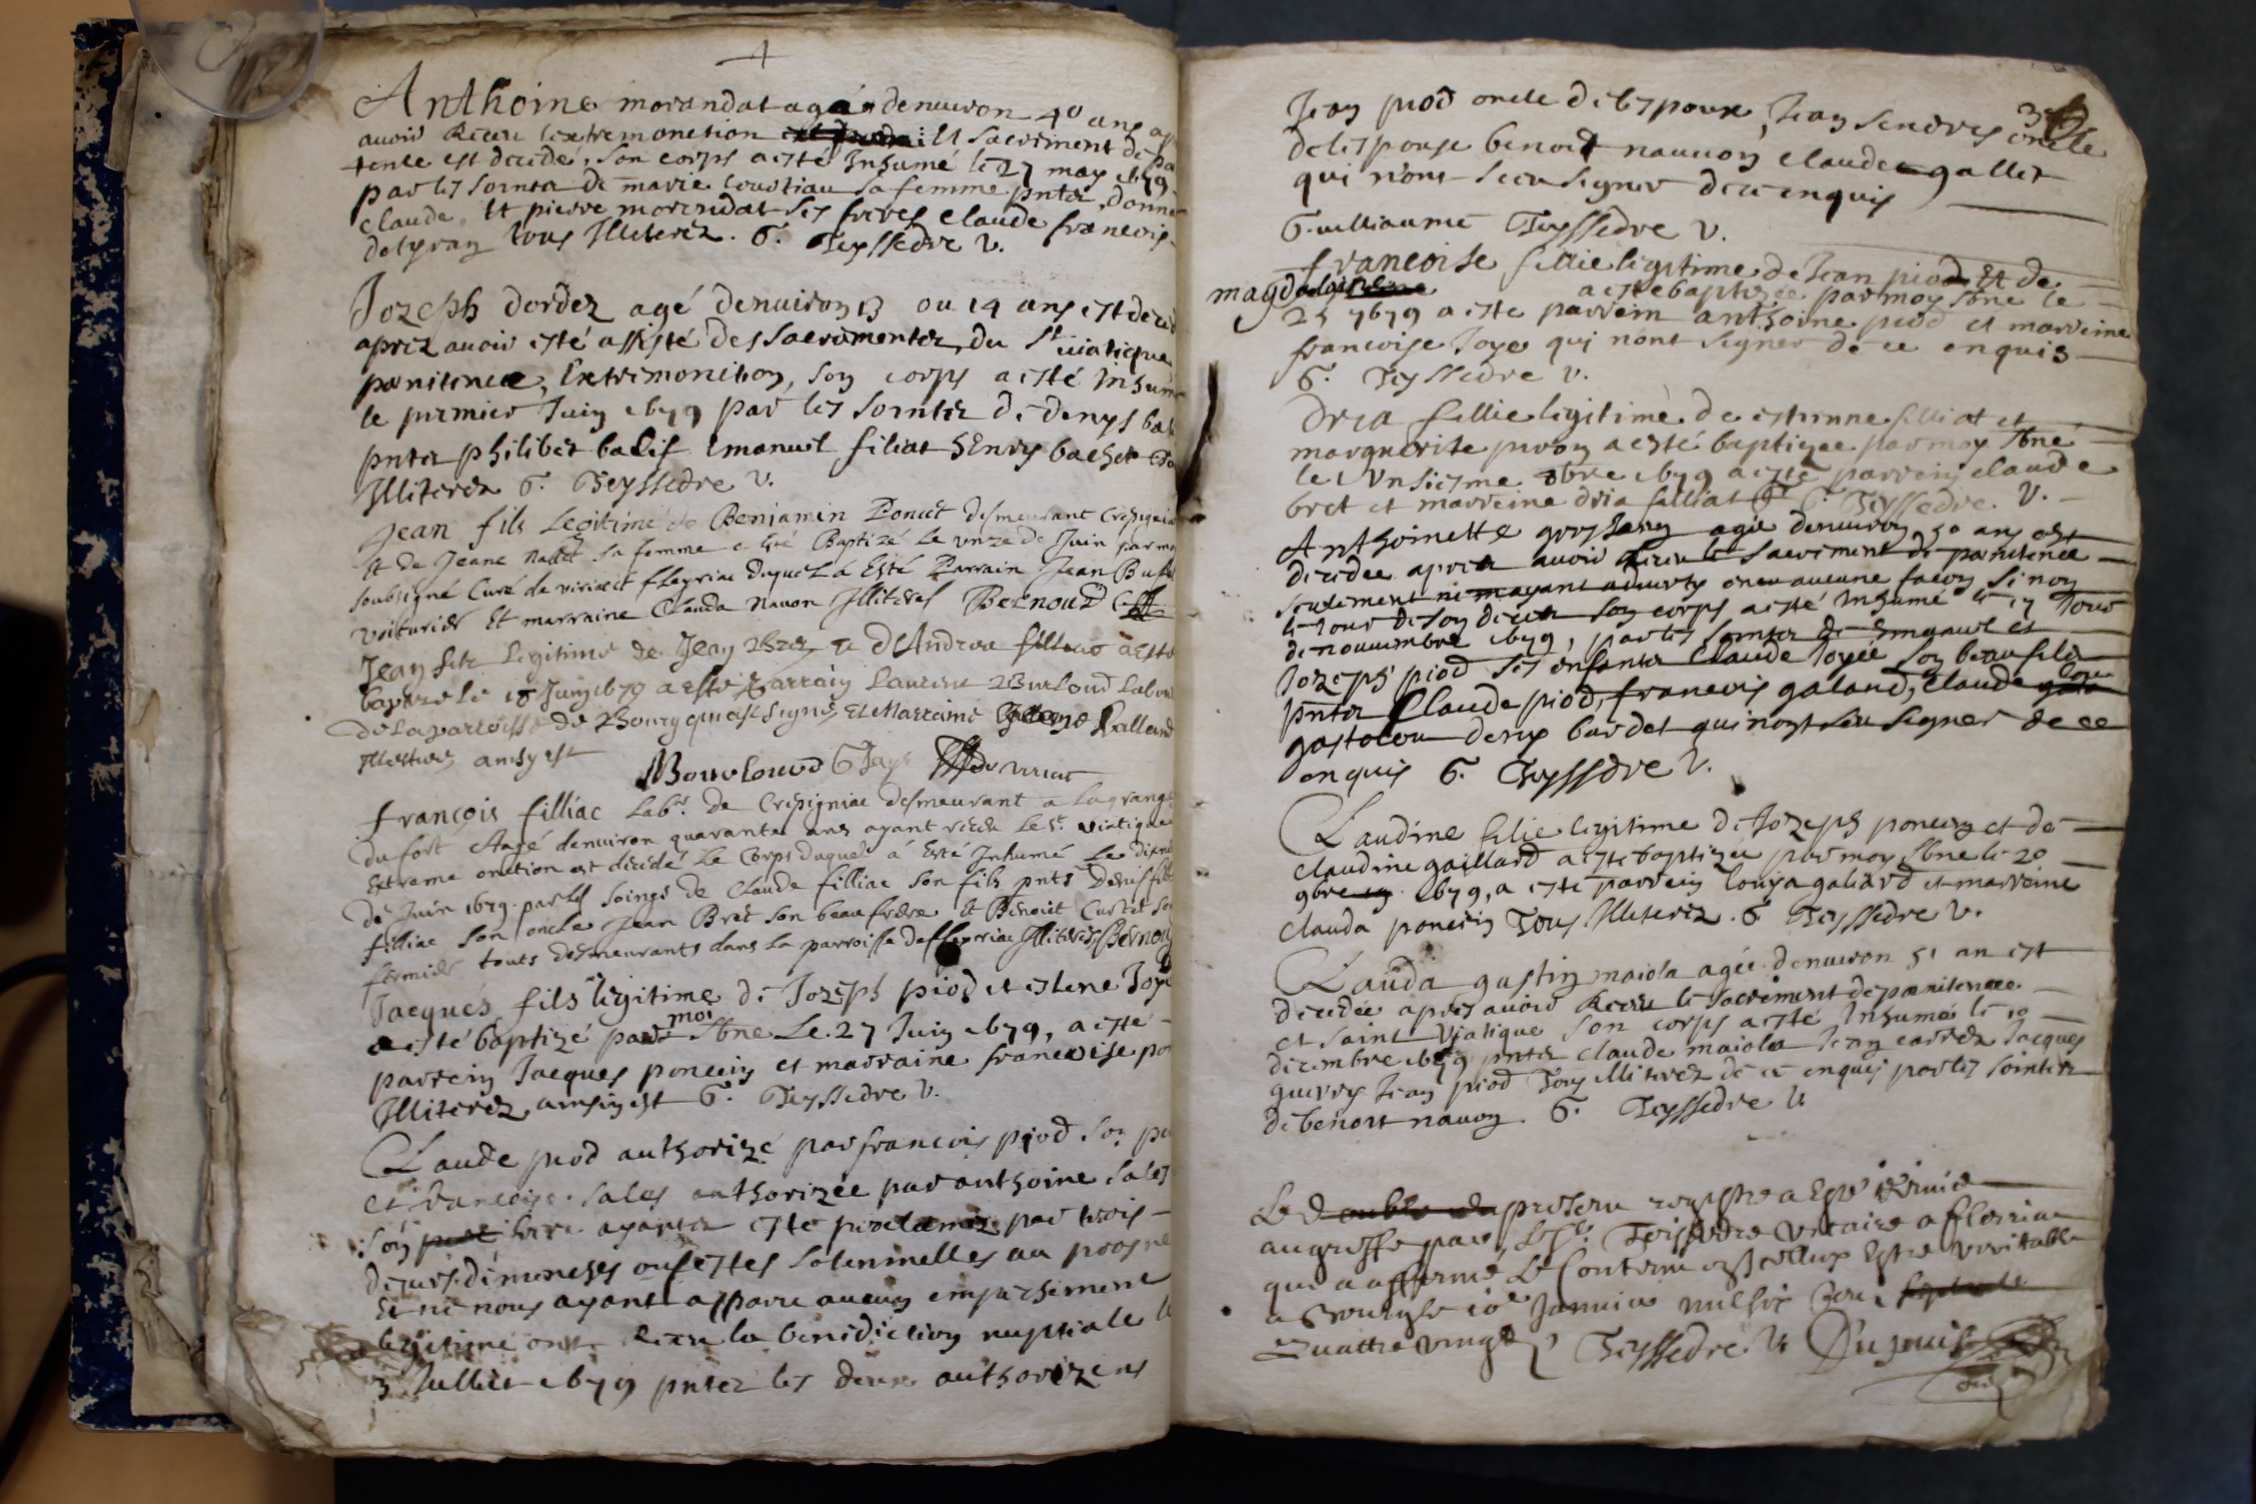 4
Anthoine morandat agé denuiron 40 ans ap
auoir Receu lextremonction Et sacrement de pa
tence est decedé, son corps a esté Inhumé le 27 may 1679
par les sointez de marie sa femme pntez, donne
claude Et pierre morendat ses freres claude francois
tous Illiterez. G. Teyssedre v.
Jozeph dordez agé denuiron 13 ou 14 ans est decedé
aprez auoir esté assisté des sacramentez, du St uiatique
pœnitence, Extremonction, son corps a esté Inhumé
le premier Juin 1679 par les sointez de denys bal
pntez philibert balif Emanuel filiat henry bachet
Illiterez G. Teyssedre v.
Jean fils Legitime de Benjamin Poncet desmeurant Crespignia
Et de Jeane sa femme a esté Baptizé Le unze de Juin par mo
soubsigné Curé de viriact fleyriac duquel a Esté Parrain Jean
voiturier Et marraine Clauda Nauon Illiterés Bernoud
Jean fils legitime de Jean et dAndrea a esté
baptizé le 18 Juin 1679 a esté parrain Laurent Bourloud
de la parroisse de Bourg qui a signé et Marraine Galland
Illiteres ainsy est
Bourloud vicaire
françois filliac Labr. de Crespigniac desmeurant a la grange
du fort Aagé denuiron quarante ans ayant receu Le St. viatique
Extreme onction est decedé Le Corps duquel a Esté Inhumé Le
de Juin 1679 par les soings de Claude filliac son fils pnts Denis
filliac son oncle Jean Bret son beaufrere Et Benoict Curtet son
fermier touts desmeurants dans La parroisse de fleyriac Illiterés Bernoud
Jacques fils legitime de Jozeph piod et eslene Joye
a esté baptizé par moi sbne Le 27 Juin 1679, a esté
parrein Jacques poncin et marraine francoise po
Illiterez ainsin est G. Teyssedre v.
Claude piod authorizé par francois piod son pe
et francoise sales authorizée par anthoine sales
son frere ayantz esté proclamez par trois
diuers dimenches ou festes solennelles au prosne
Et ne nous ayant apparu aucun empechement
legitime ont Receu la benediction nuptiale le
3 Jullet 1679 pntez les deux authorizens
3
Jean piod oncle de lespoux, Jean sendres oncle
de lespouse benoit nauuon claude gallet
qui n'ont sceu signer de ce enquis
Guilliaume Teyssedre v.
francoise fillie legitime de Jean piod Et de
magdelaine a esté baptizée par moy sbne le
1679 a esté parrein anthoine piod et marreine
francoise Joye qui n'ont signer de ce enquis
G. Teyssedre v.
Drea fillie legitime de estienne filliat et
marguerite piron a esté baptizee par moy sbne
le Unsiesme 8bre 1679 a esté parrein claude
bret et marreine dria filliat G. Teyssedre v.
Anthoinette agée denuiron 50 ans est
decedee aprez auoir Receu le sacrement de pœnitence
seulement ni mayant aduerty en aucune facon sinon
le Jour de son decez son corps a esté Inhumé le 17 Jour
de nouuembre 1679, par les sointez de Emanuel et
Jozeph piod ses enfantz Claude Joyée son beaufilz
pntez Claude piod, francois galand, Claude
deny bardet qui nont sceu signer de ce
enquis G. Teyssedre v.
Claudine filie legitime de Jozeph poncin et de
claudine gaillard a esté baptizée par moy sbne le 20
9bre 1679, a esté parrein louys galiard et marreine
clauda poncin Tous Illiterez. G Teyssedre v.
Clauda gustin maiola agée denuiron 51 an est
decedée apres auoir Receu le sacrement de pœnitence
et saint Viatique son corps a esté Inhumé le 10
decembre 1679 pntez claude maiola Jean carrez Jacques
guerry Jean piod Tous illiterez de ce enquis par les sointez
de benoit nauon. G. Teyssedre v
Le double du present registre a Esté remis
au greffe par Le Sr. Teissedre vicaire a fleiria
qui a affirmé Le Contenu en Icelluy Estre veritable
a Bourg le 10e Januier mil six cens
Quattre vingt Teyssedre v Dupuis